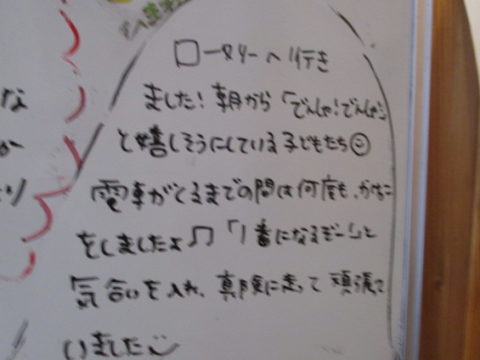 ロータリーへ行き
ました!朝から「でんしゃ!でんしゃ!」
と嬉しそうにしている子どもたち☺
電車がくるまでの間は何度も、かけっこ
をしましたよ♫「1番になるぞー!」と
気合いを入れ、真剣に走って頑張って
いました